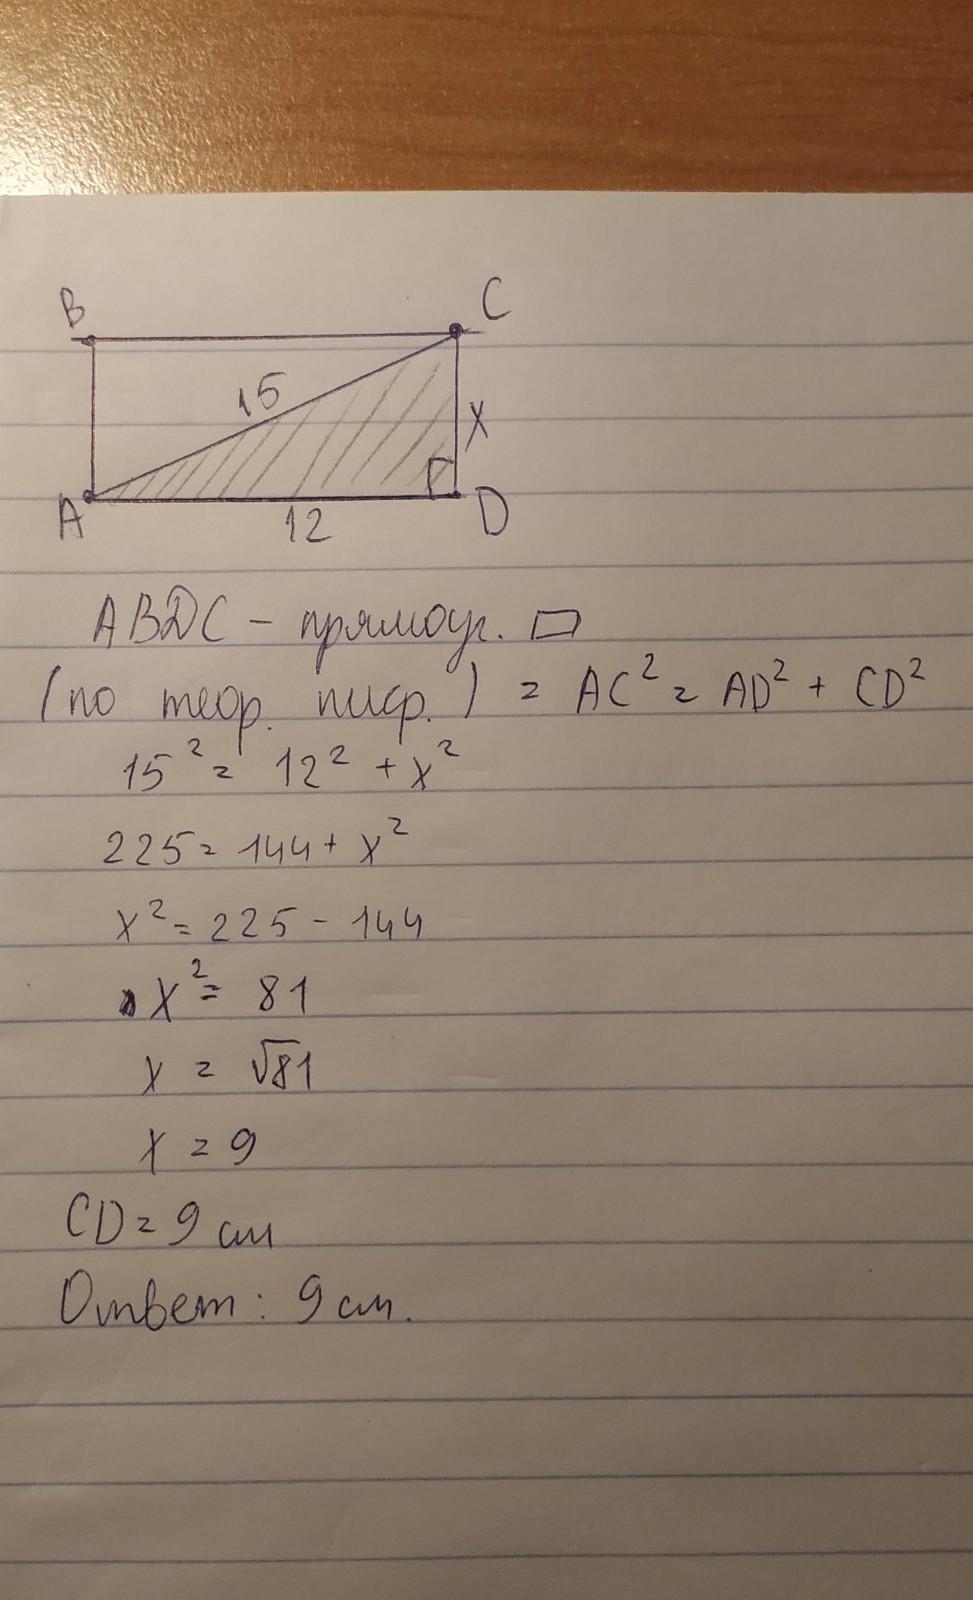 B
C
15
X
A
12
D
ABDC – прямоуг. ▭
(по теор. пиф.) = AC² = AD² + CD²
15² = 12² + x²
225 = 144 + x²
x² = 225 - 144
x² = 81
x = √81
x = 9
CD = 9 см
Ответ: 9 см.